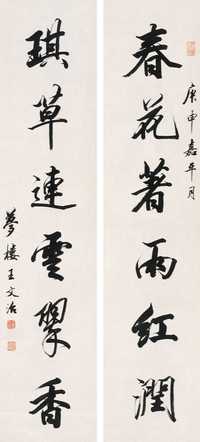 庚申嘉平月
春花著雨紅潤
琪草連雲翠香
夢樓王文治